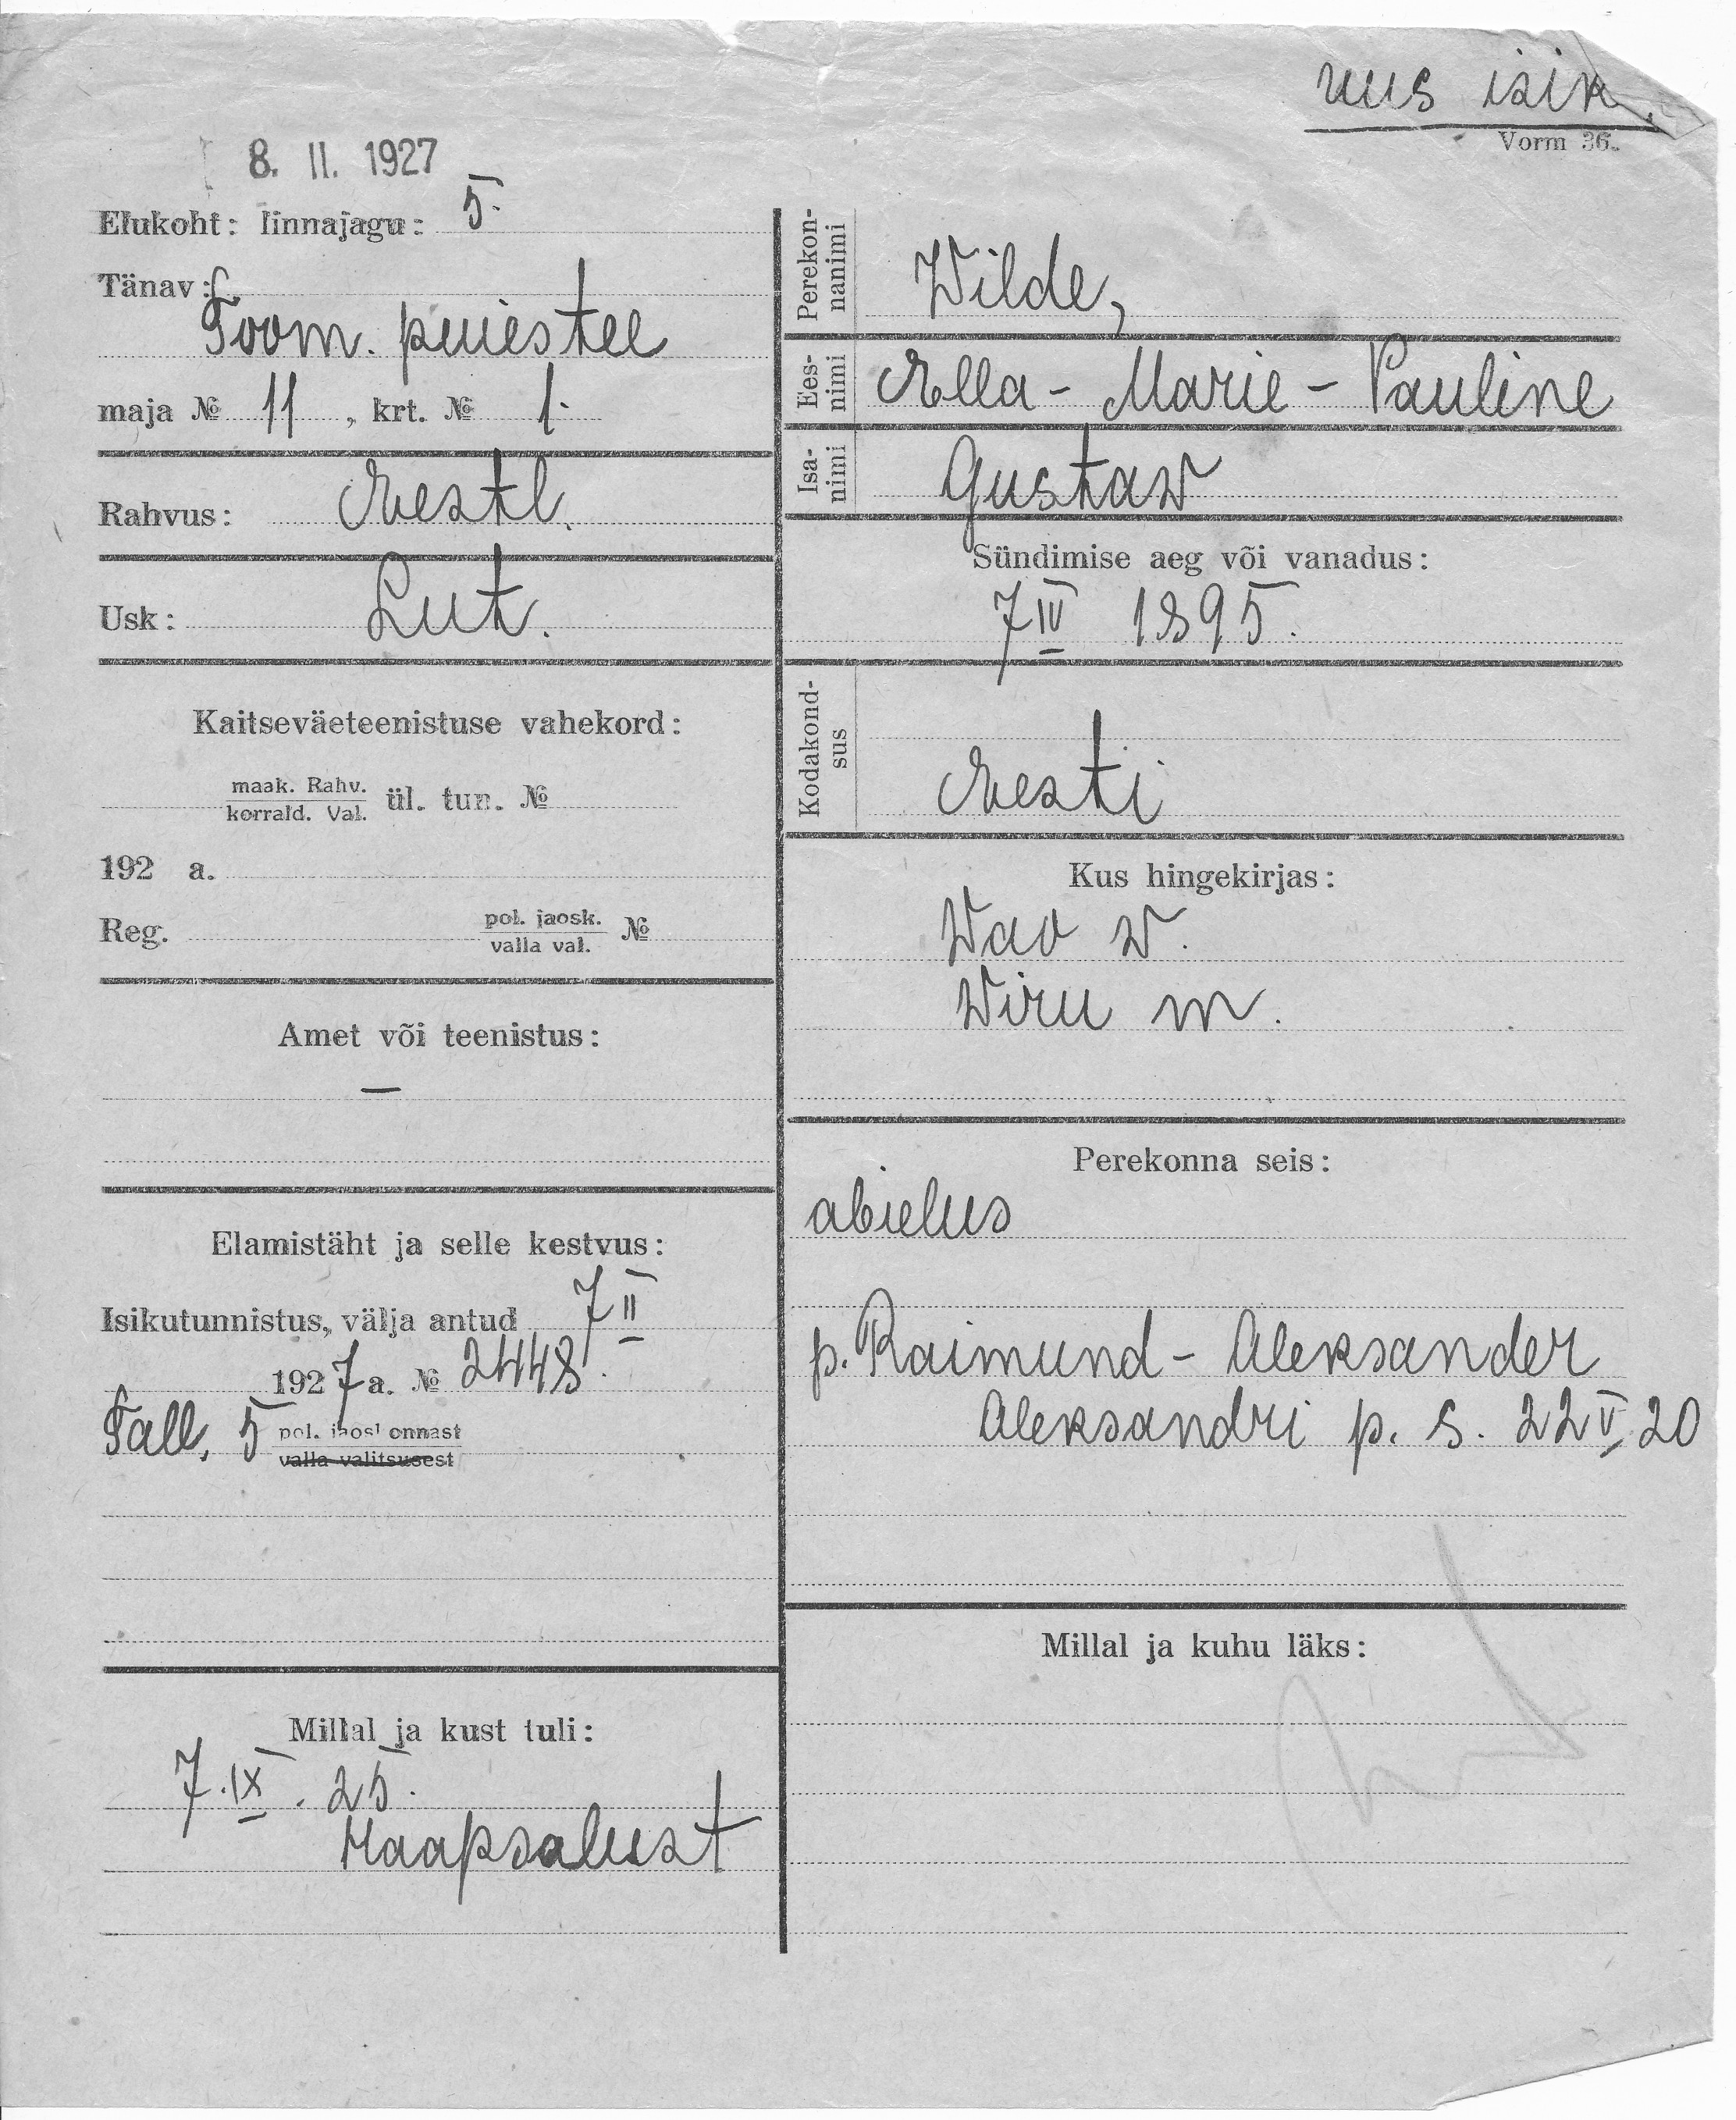 uus isik.
Vorm 36.
8. II. 1927
Elukoht: linnajagu: 5.
Tänav:
Toom. puiestee
maja № 11, krt. № 1.
Rahvus: Eestl.
Usk: Lut.
Kaitseväeteenistuse vahekord:
maak. Rahv.
korrald. Val. ül. tun. №
192 a.
Reg. pol. jaosk. №
valla val.
Amet või teenistus:
—
Elamistäht ja selle kestvus:
Isikutunnistus, välja antud 7 II
1927 a. № 2448.
Tall. 5 pol. jaoskonnast
valla valitsusest
Millal ja kust tuli:
7. IX. 25.
Haapsalust
Perekon-
nanimi
Wilde,
Ees-
nimi
Ella-Marie-Pauline
Isa-
nimi
Gustaw
Sündimise aeg või vanadus:
7 IV 1895.
Kodakond-
sus
Eesti
Kus hingekirjas:
Wao w.
Wiru m.
Perekonna seis:
abielus
p. Raimund-Aleksander
Aleksandri p. s. 22 V 20
Millal ja kuhu läks: